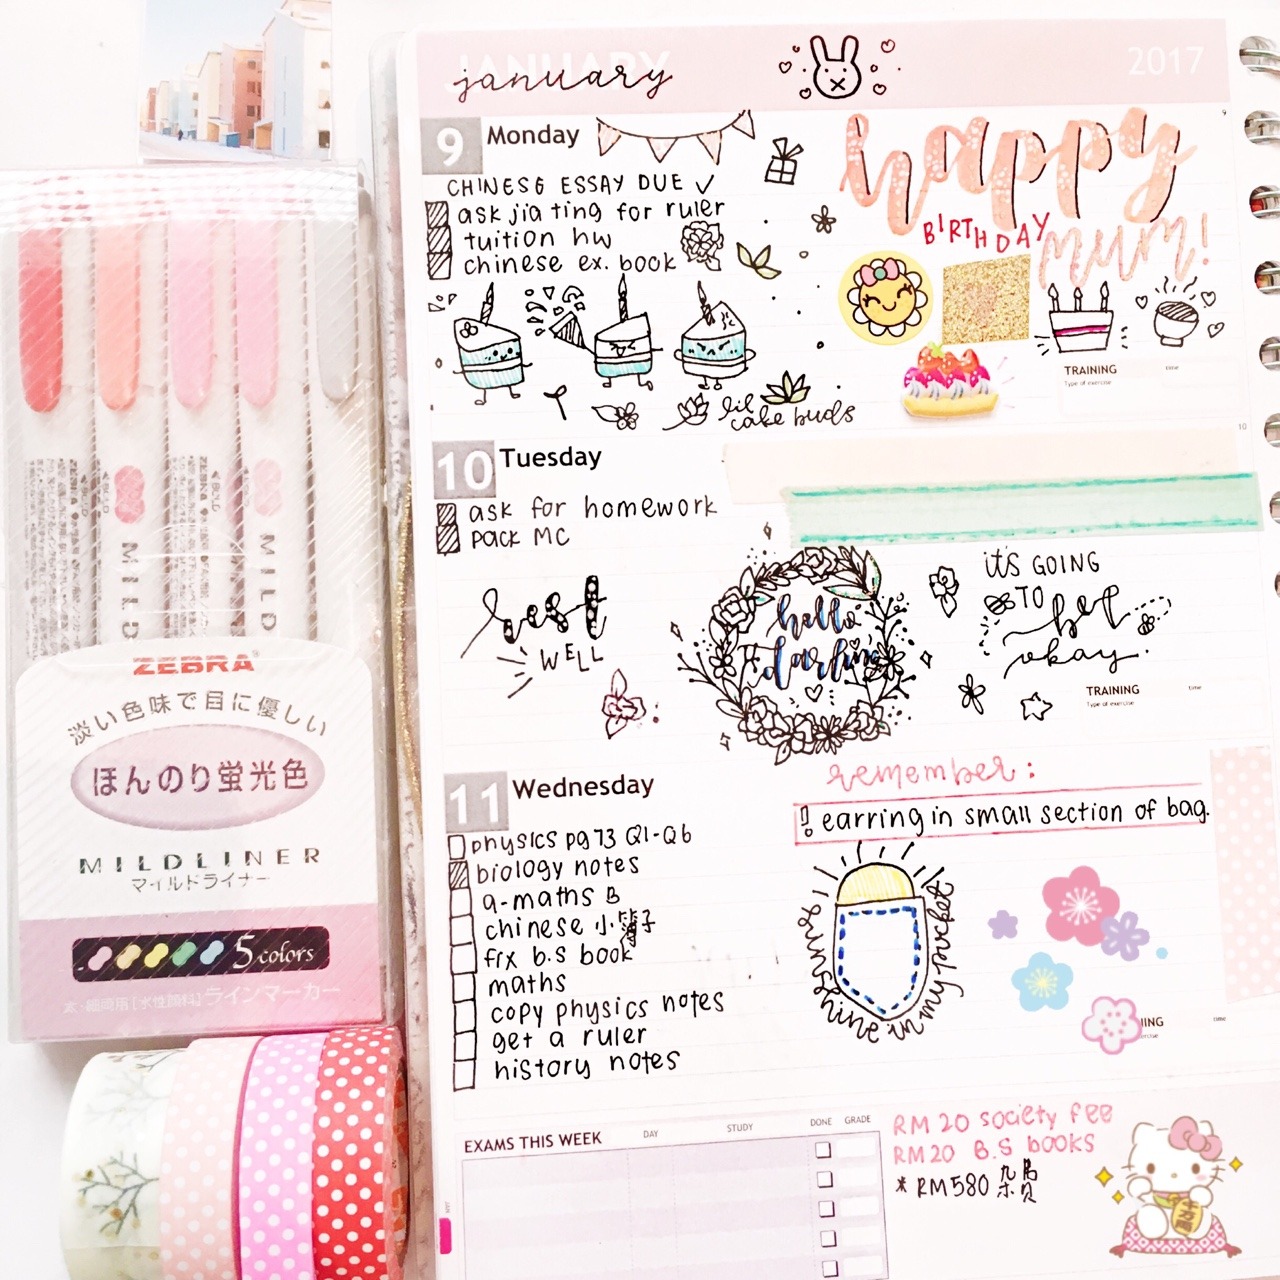 JANUARY
january
2017
9 Monday
CHINESE ESSAY DUE ✓
ask jia ting for ruler
tuition hw
chinese ex. book
lil
cake buds
happy
BIRTHDAY
mum!
TRAINING
Type of exercise
time
10 Tuesday
ask for homework
pack MC
rest
WELL
hello
darling
it's GOING
TO be
okay.
TRAINING
Type of exercise
time
11 Wednesday
physics pg 73 Q1-Q6
biology notes
a-maths B
chinese 小簿子
fix b.s book
maths
copy physics notes
get a ruler
history notes
remember:
! earring in small section of bag.
sunshine in my pocket
ING
time
EXAMS THIS WEEK
DAY
STUDY
DONE
GRADE
RM 20 society fee
RM20 B.S books
* RM580
JAN
ZEBRA
MILD
MILD
ZEBRA
淡い色味で目に優しい
ほんのり蛍光色
MILDLINER
マイルドライナー
5 colors
ラインマーカー